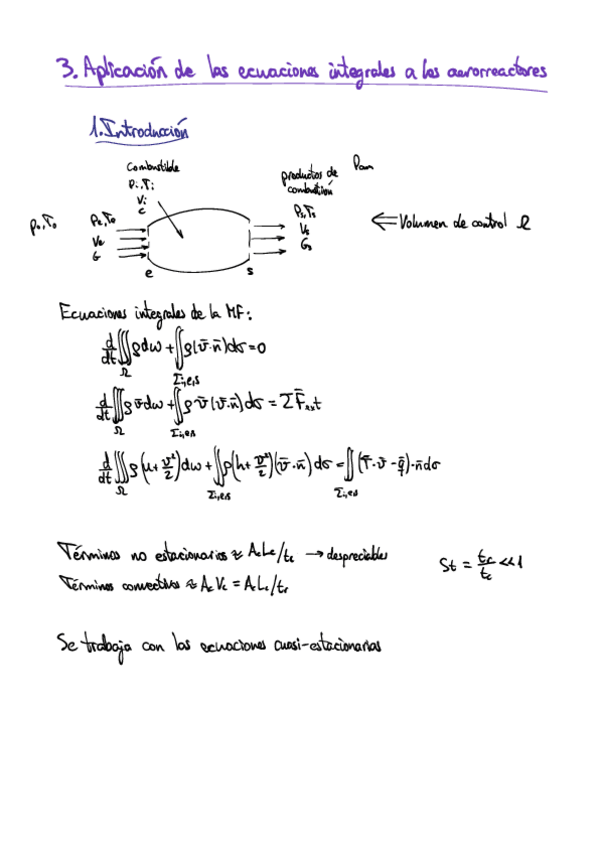 3. Aplicación de las ecuaciones integrales a los aerorreactores
1. Introducción
Combustible
Pi, Ti
Vi
c
productos de combustión
Pam
P₀, T₀
Pe, Te
Ve
G
Ps, Ts
Vs
Gs
e
s
⇐ Volumen de control Ω
Ecuaciones integrales de la MF:
d/dt ∭_Ω ρdω + ∬_Σi,e,s ρ(v̄·n̄)dσ = 0
d/dt ∭_Ω ρv̄dω + ∬_Σi,e,s ρv̄(v̄·n̄)dσ = ΣF̄ext
d/dt ∭_Ω ρ(u+v²/2)dω + ∬_Σi,e,s ρ(h+v²/2)(v̄·n̄)dσ = ∬_Σi,e,s (τ̄·v̄ - q̄)·n̄dσ
Términos no estacionarios ≈ AcLc/tc → despreciables
St = tr/tc <<1
Términos convectivos ≈ AcVc = AcLc/tr
Se trabaja con las ecuaciones cuasi-estacionarias